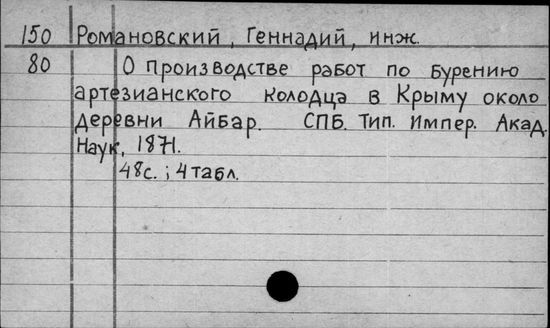 150 Романовский, Геннадий, инж.
80 О производстве работ по бурению
артезианского колодца в Крыму около
деревни Айбар. СПБ. Тип. Импер. Акад.
Наук, 1871.
48с.; 4 табл.